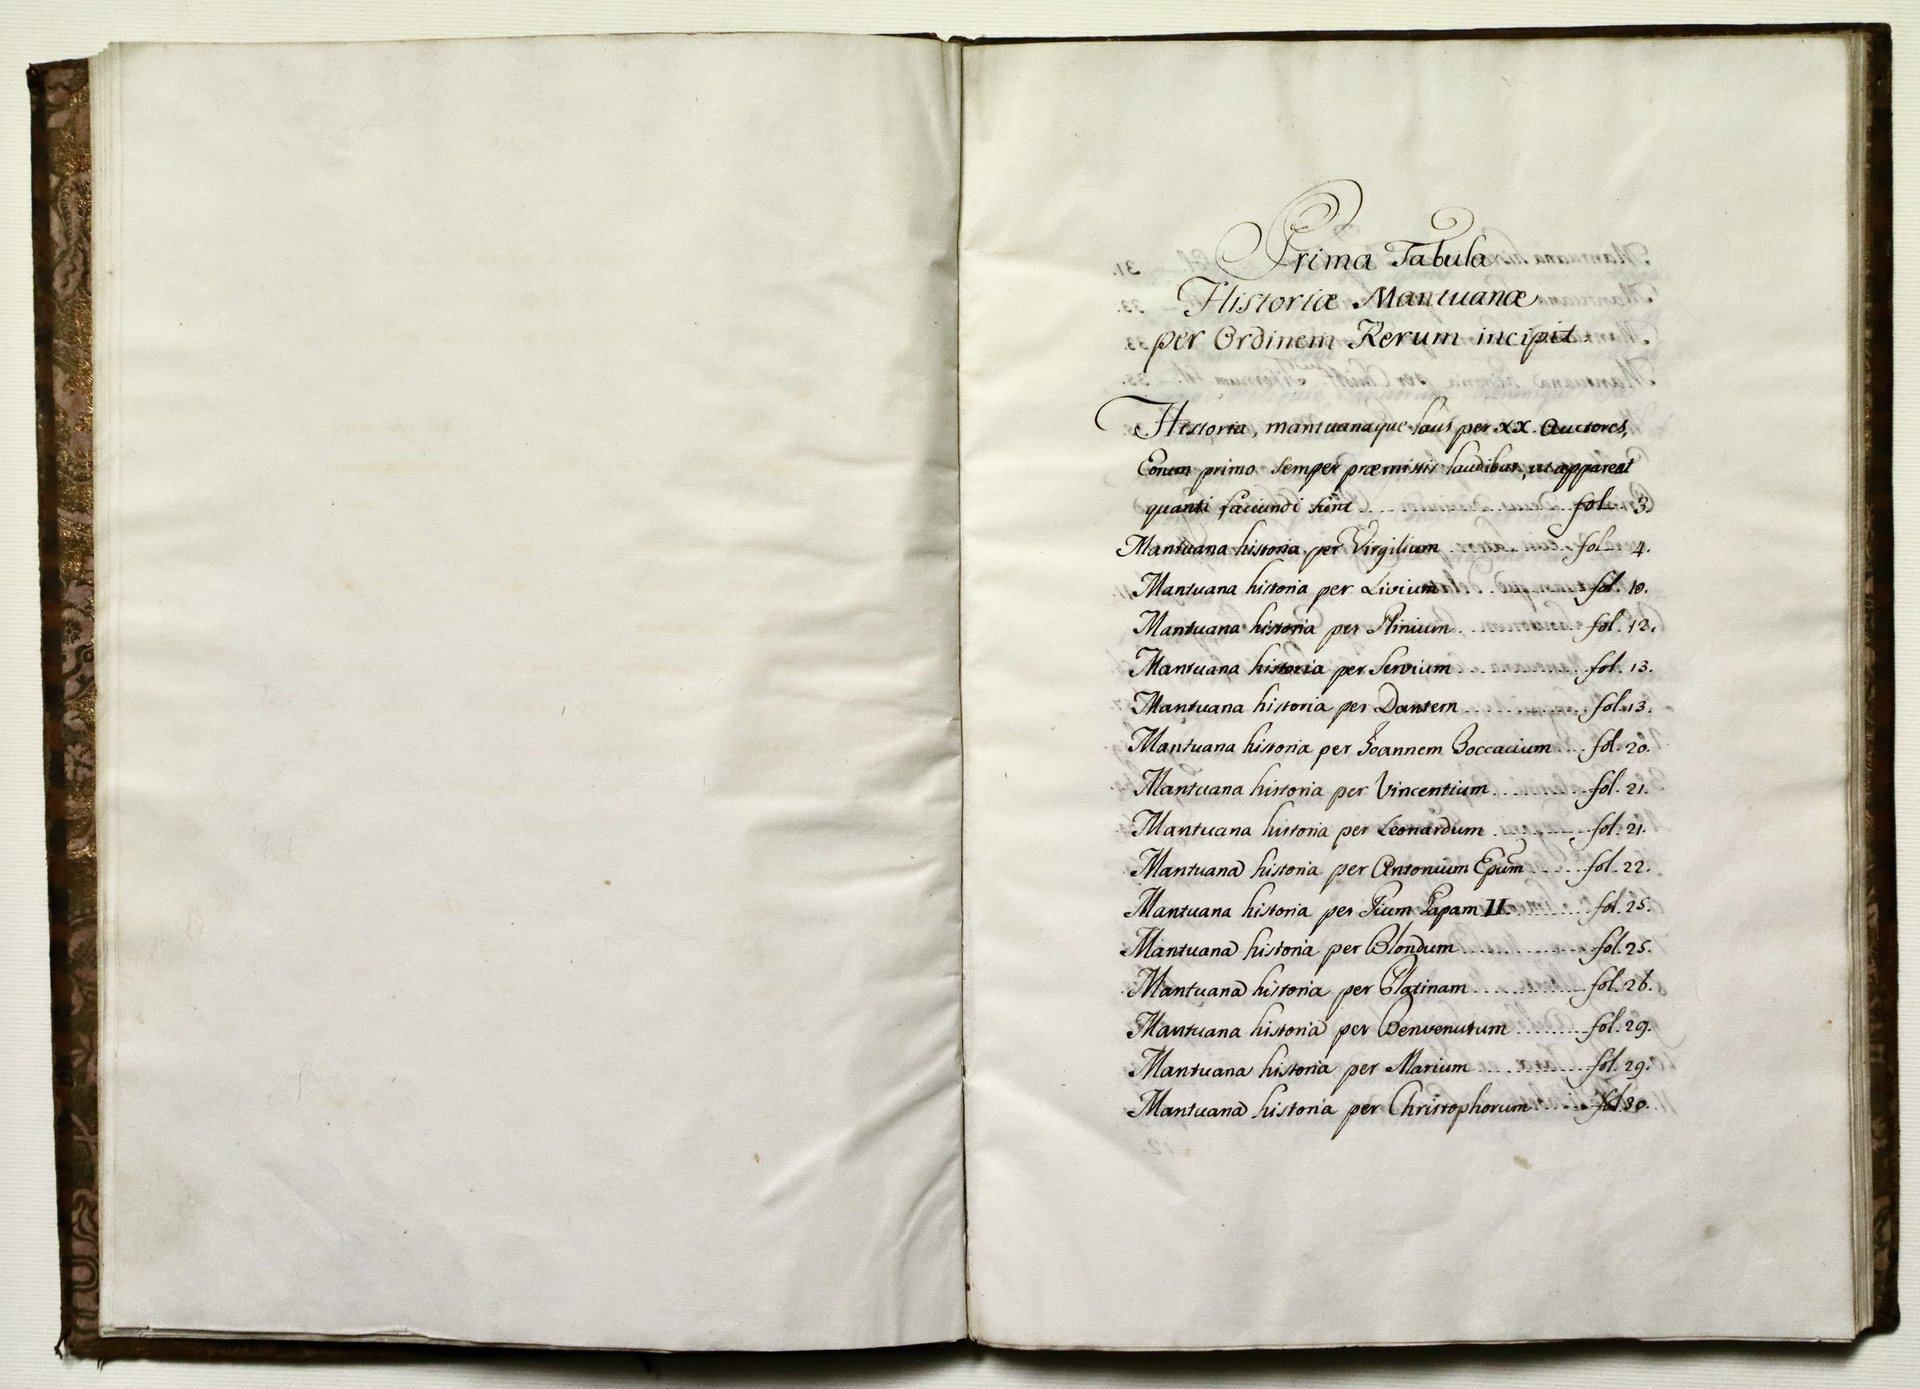 Prima Tabula
Historiæ Mantuanæ
per Ordinem Rerum incipit.
Historia, mantuanaque laus per XX. Auctores,
Eorum primo semper præmissis laudibus, ut appareat
quanti faciundi sint .... fol. 3.
Mantuana historia per Virgilium ... fol. 4.
Mantuana historia per Livium ... fol. 10.
Mantuana historia per Plinium ... fol. 12.
Mantuana historia per Servium ... fol. 13.
Mantuana historia per Dantem ... fol. 13.
Mantuana historia per Joannem Boccacium ... fol. 20.
Mantuana historia per Vincentium ... fol. 21.
Mantuana historia per Leonardum ... fol. 21.
Mantuana historia per Antonium Epum ... fol. 22.
Mantuana historia per Pium Papam II. ... fol. 25.
Mantuana historia per Blondum ... fol. 25.
Mantuana historia per Platinam ... fol. 26.
Mantuana historia per Benvenutum ... fol. 29.
Mantuana historia per Marium ... fol. 29.
Mantuana historia per Christophorum ... fol. 30.